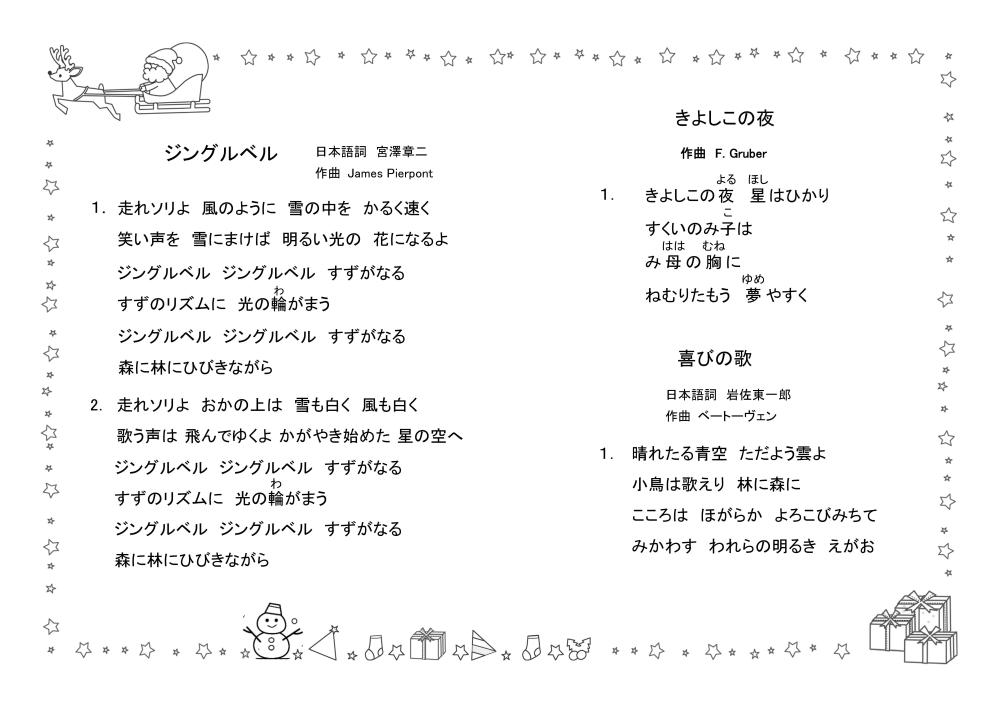 ジングルベル 日本語詞 宮澤章二
作曲 James Pierpont
1. 走れソリよ 風のように 雪の中を かるく速く
笑い声を 雪にまけば 明るい光の 花になるよ
ジングルベル ジングルベル すずがなる
わ
すずのリズムに 光の輪がまう
ジングルベル ジングルベル すずがなる
森に林にひびきながら
2. 走れソリよ おかの上は 雪も白く 風も白く
歌う声は 飛んでゆくよ かがやき始めた 星の空へ
ジングルベル ジングルベル すずがなる
わ
すずのリズムに 光の輪がまう
ジングルベル ジングルベル すずがなる
森に林にひびきながら
きよしこの夜
作曲 F. Gruber
よる ほし
1. きよしこの夜 星はひかり
こ
すくいのみ子は
はは むね
み母の胸に
ゆめ
ねむりたもう 夢やすく
喜びの歌
日本語詞 岩佐東一郎
作曲 ベートーヴェン
1. 晴れたる青空 ただよう雲よ
小鳥は歌えり 林に森に
こころは ほがらか よろこびみちて
みかわす われらの明るき えがお